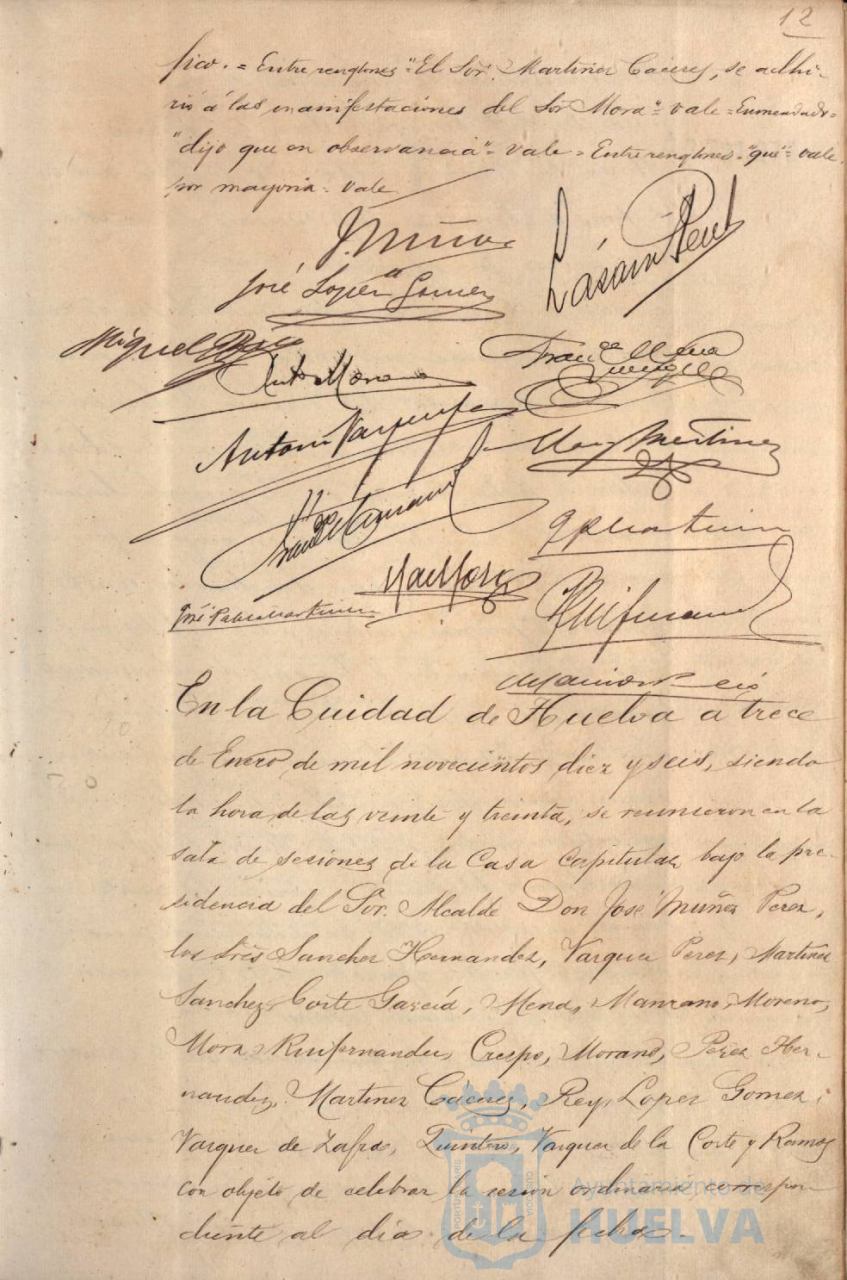 12
fico. = Entre renglones "El Sor. Martinez Caceres, se adhi-
rió á las manifestaciones del Sor Mora" = vale = Enmendado =
"dijo que en observancia" = vale = Entre renglones = "que" = vale
por mayoria = vale
J. Muñoz
José López Gomez
Lázaro
Miguel
Anto Moreno
Franco Mena
Antonio Vazquez
Martinez
Manzano
Mora
José
Ruifernandez
En la Cuidad de Huelva a trece
de Enero de mil novecientos diez y seis, siendo
la hora de las veinte y treinta, se reunieron en la
sala de sesiones de la Casa Capitular bajo la pre-
sidencia del Sor. Alcalde Don Jose Muñoz Perez,
los Sres Sanchez Hernandez, Vazquez Perez, Martinez
Sanchez, Corte García, Mena, Manzano, Moreno,
Mora, Ruifernandez, Crespo, Morano, Perez Her-
nandez, Martinez Cáceres, Rey, Lopez Gomez,
Vazquez de Zafra, Quintero, Vazquez de la Corte y Ramos
con objeto de celebrar la sesión ordinaria correspon
diente al dia de la fecha.
Ayuntamiento de
HUELVA